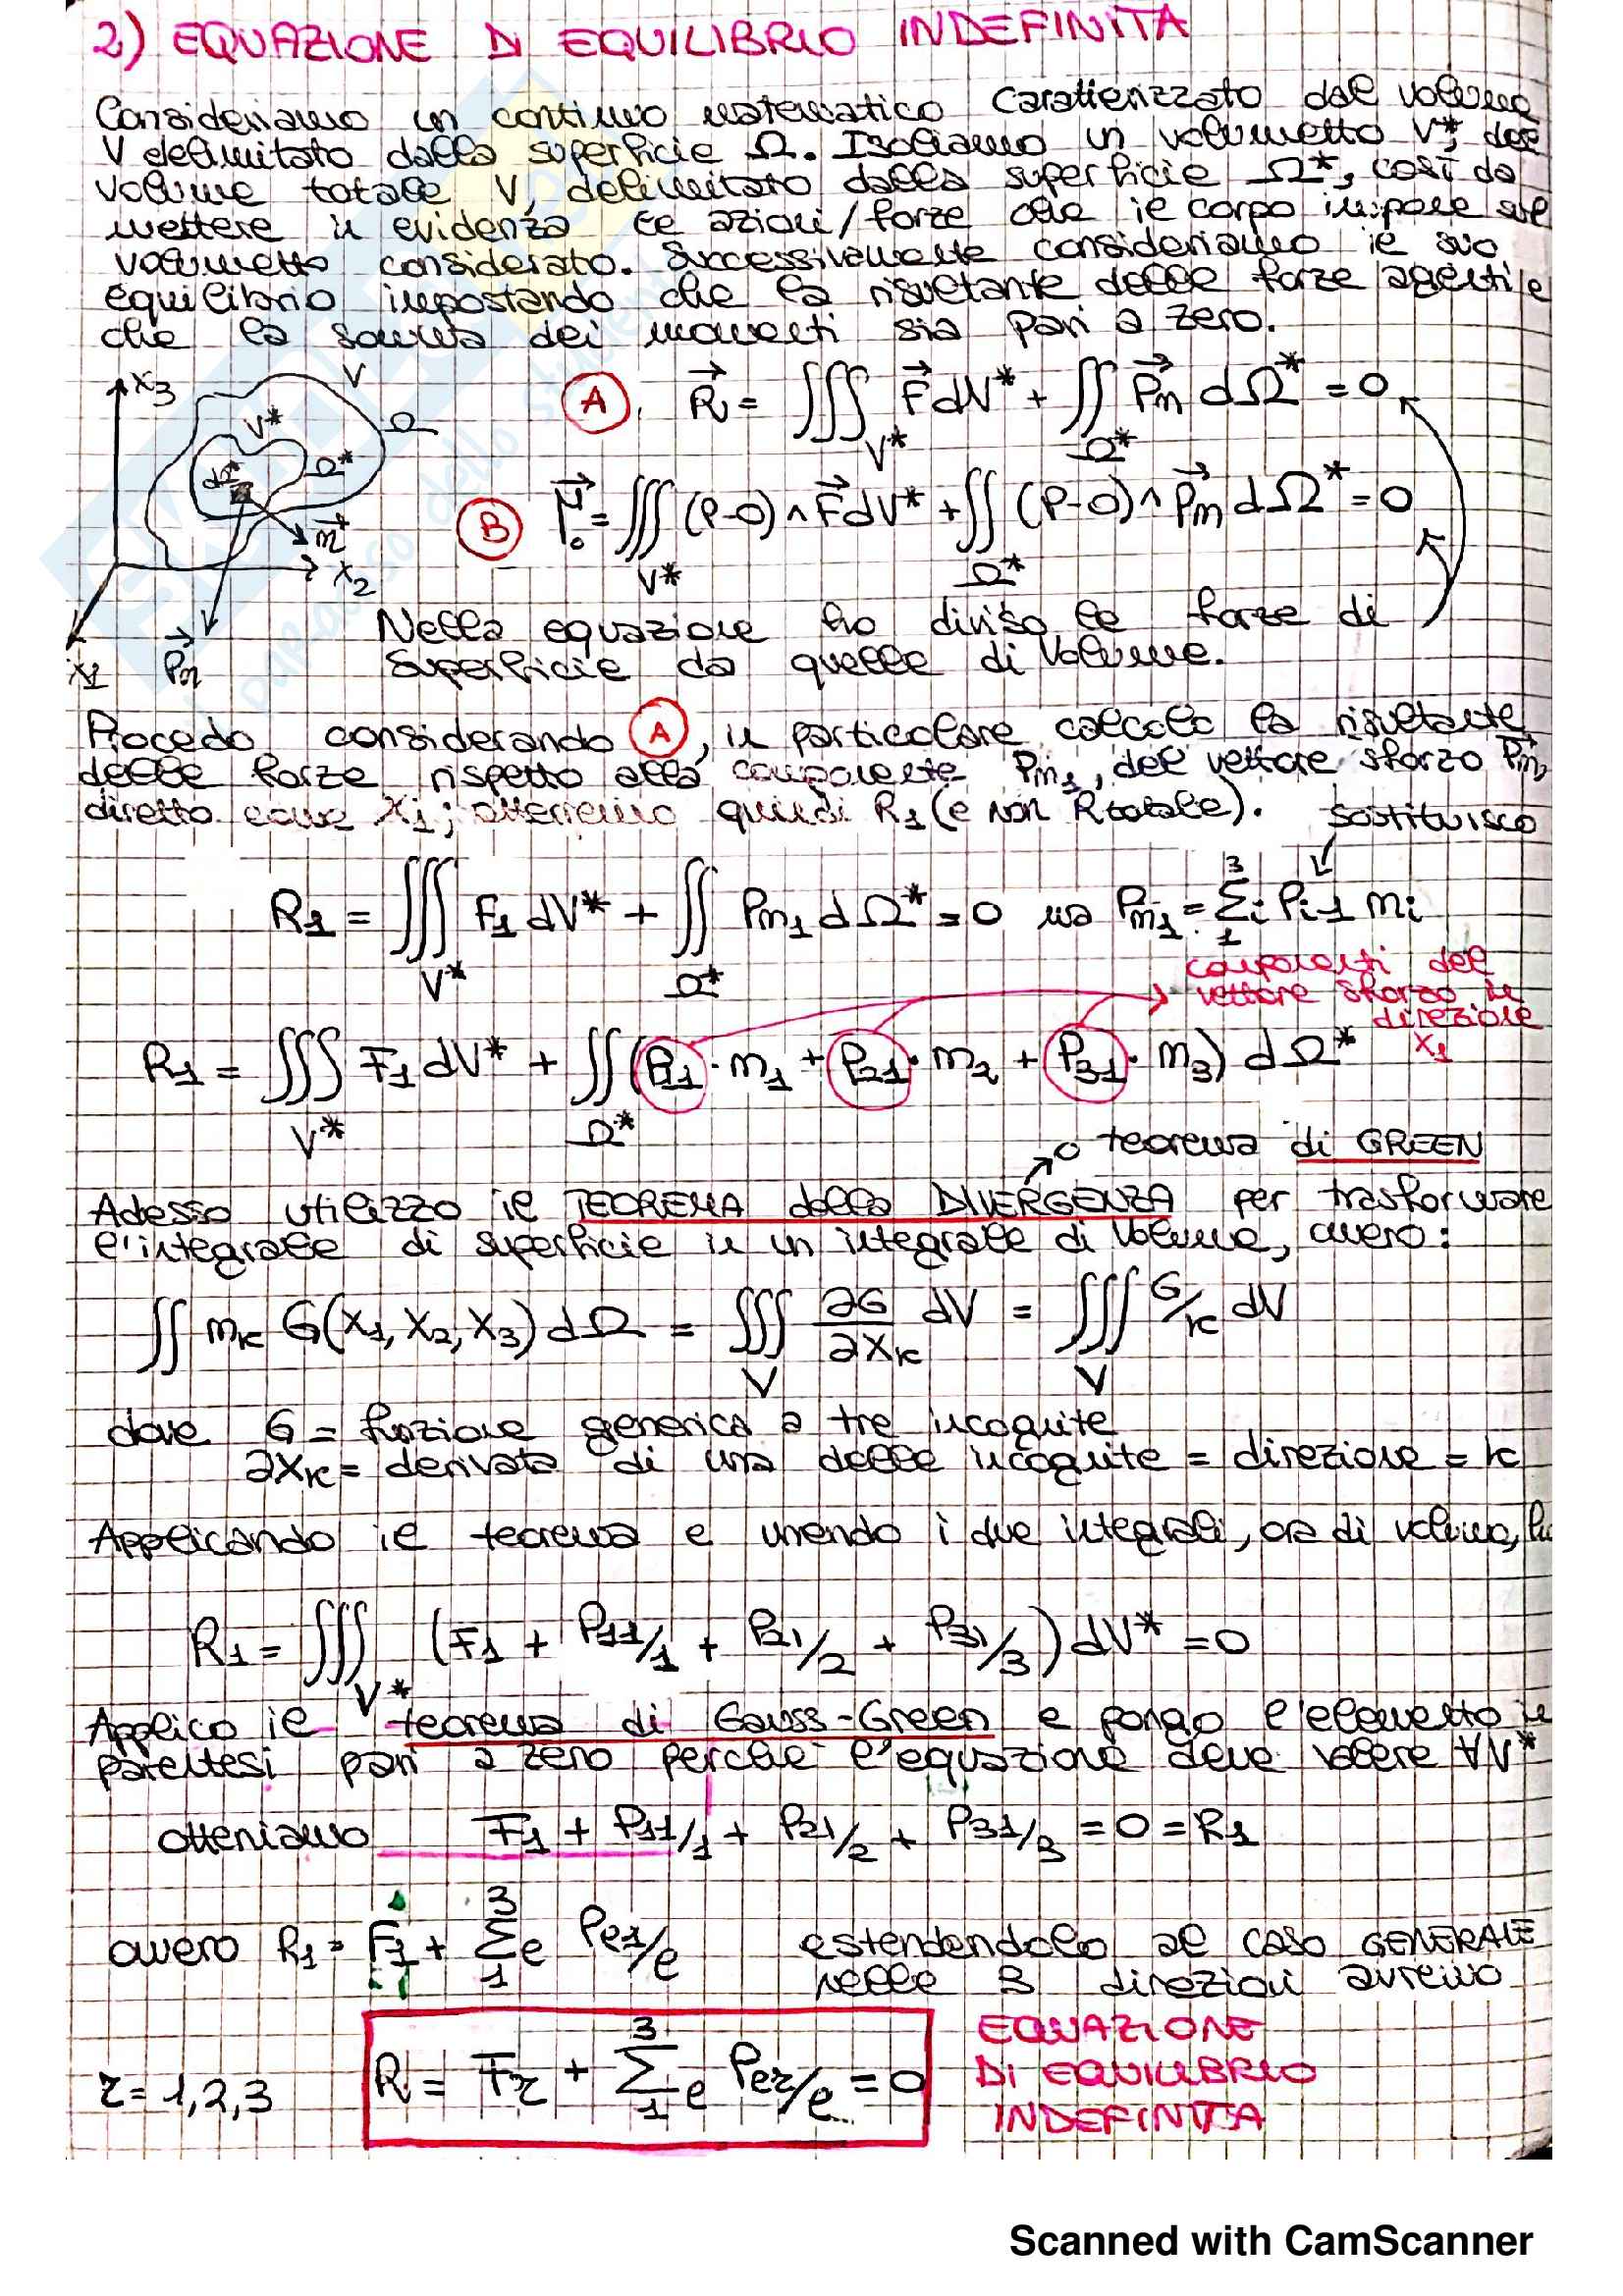 2) EQUAZIONE DI EQUILIBRIO INDEFINITA
Consideriamo un continuo matematico caratterizzato dal volume
V delimitato dalla superficie Ω. Isoliamo un volumetto V*, del
volume totale V, delimitato dalla superficie Ω*, così da
mettere in evidenza le azioni/forze che il corpo impone sul
volumetto considerato. Successivamente consideriamo il suo
equilibrio impostando che la risultante delle forze agenti e
che la somma dei momenti sia pari a zero.
x3 V V* Ω Ω* dΩ* n x2 x1 Pn
A. R = ∭V* F dV* + ∬Ω* Pn dΩ* = 0
B M₀ = ∭V* (P-O) ∧ F dV* + ∬Ω* (P-O) ∧ Pn dΩ* = 0
Nella equazione ho diviso le forze di
superficie da quelle di volume.
Procedo considerando A, in particolare calcolo la risultante
delle forze rispetto alla componente Pn1, del vettore sforzo Pn,
diretto come X1; otterremo quindi R1 (e non R totale). sostituisco
R1 = ∭V* F1 dV* + ∬Ω* Pn1 dΩ* = 0 ma Pn1 = Σi Pi1 ni
3
1
componenti del
vettore sforzo in
direzione
x1
R1 = ∭V* F1 dV* + ∬Ω* (P11 · n1 + P21 · n2 + P31 · n3) dΩ*
o teorema di GREEN
Adesso utilizzo il TEOREMA della DIVERGENZA per trasformare
l'integrale di superficie in un integrale di volume, ovvero:
∬ nk G(x1, x2, x3) dΩ = ∭V ∂G/∂xk dV = ∭V G/k dV
dove G = funzione generica a tre incognite
∂xk = derivata di una delle incognite = direzione = k
Applicando il teorema e unendo i due integrali, ora di volume,
R1 = ∭V* (F1 + P11/1 + P21/2 + P31/3) dV* = 0
Applico il teorema di Gauss-Green e pongo l'elemento in
parentesi pari a zero perché l'equazione deve valere ∀V*
otteniamo F1 + P11/1 + P21/2 + P31/3 = 0 = R1
ovvero R1 = F1 + Σe Pe1/e estendendolo al caso GENERALE
3
1
nelle 3 direzioni avremo
r = 1,2,3 R = Fr + Σe Per/e = 0
3
1
EQUAZIONE
DI EQUILIBRIO
INDEFINITA
Scanned with CamScanner